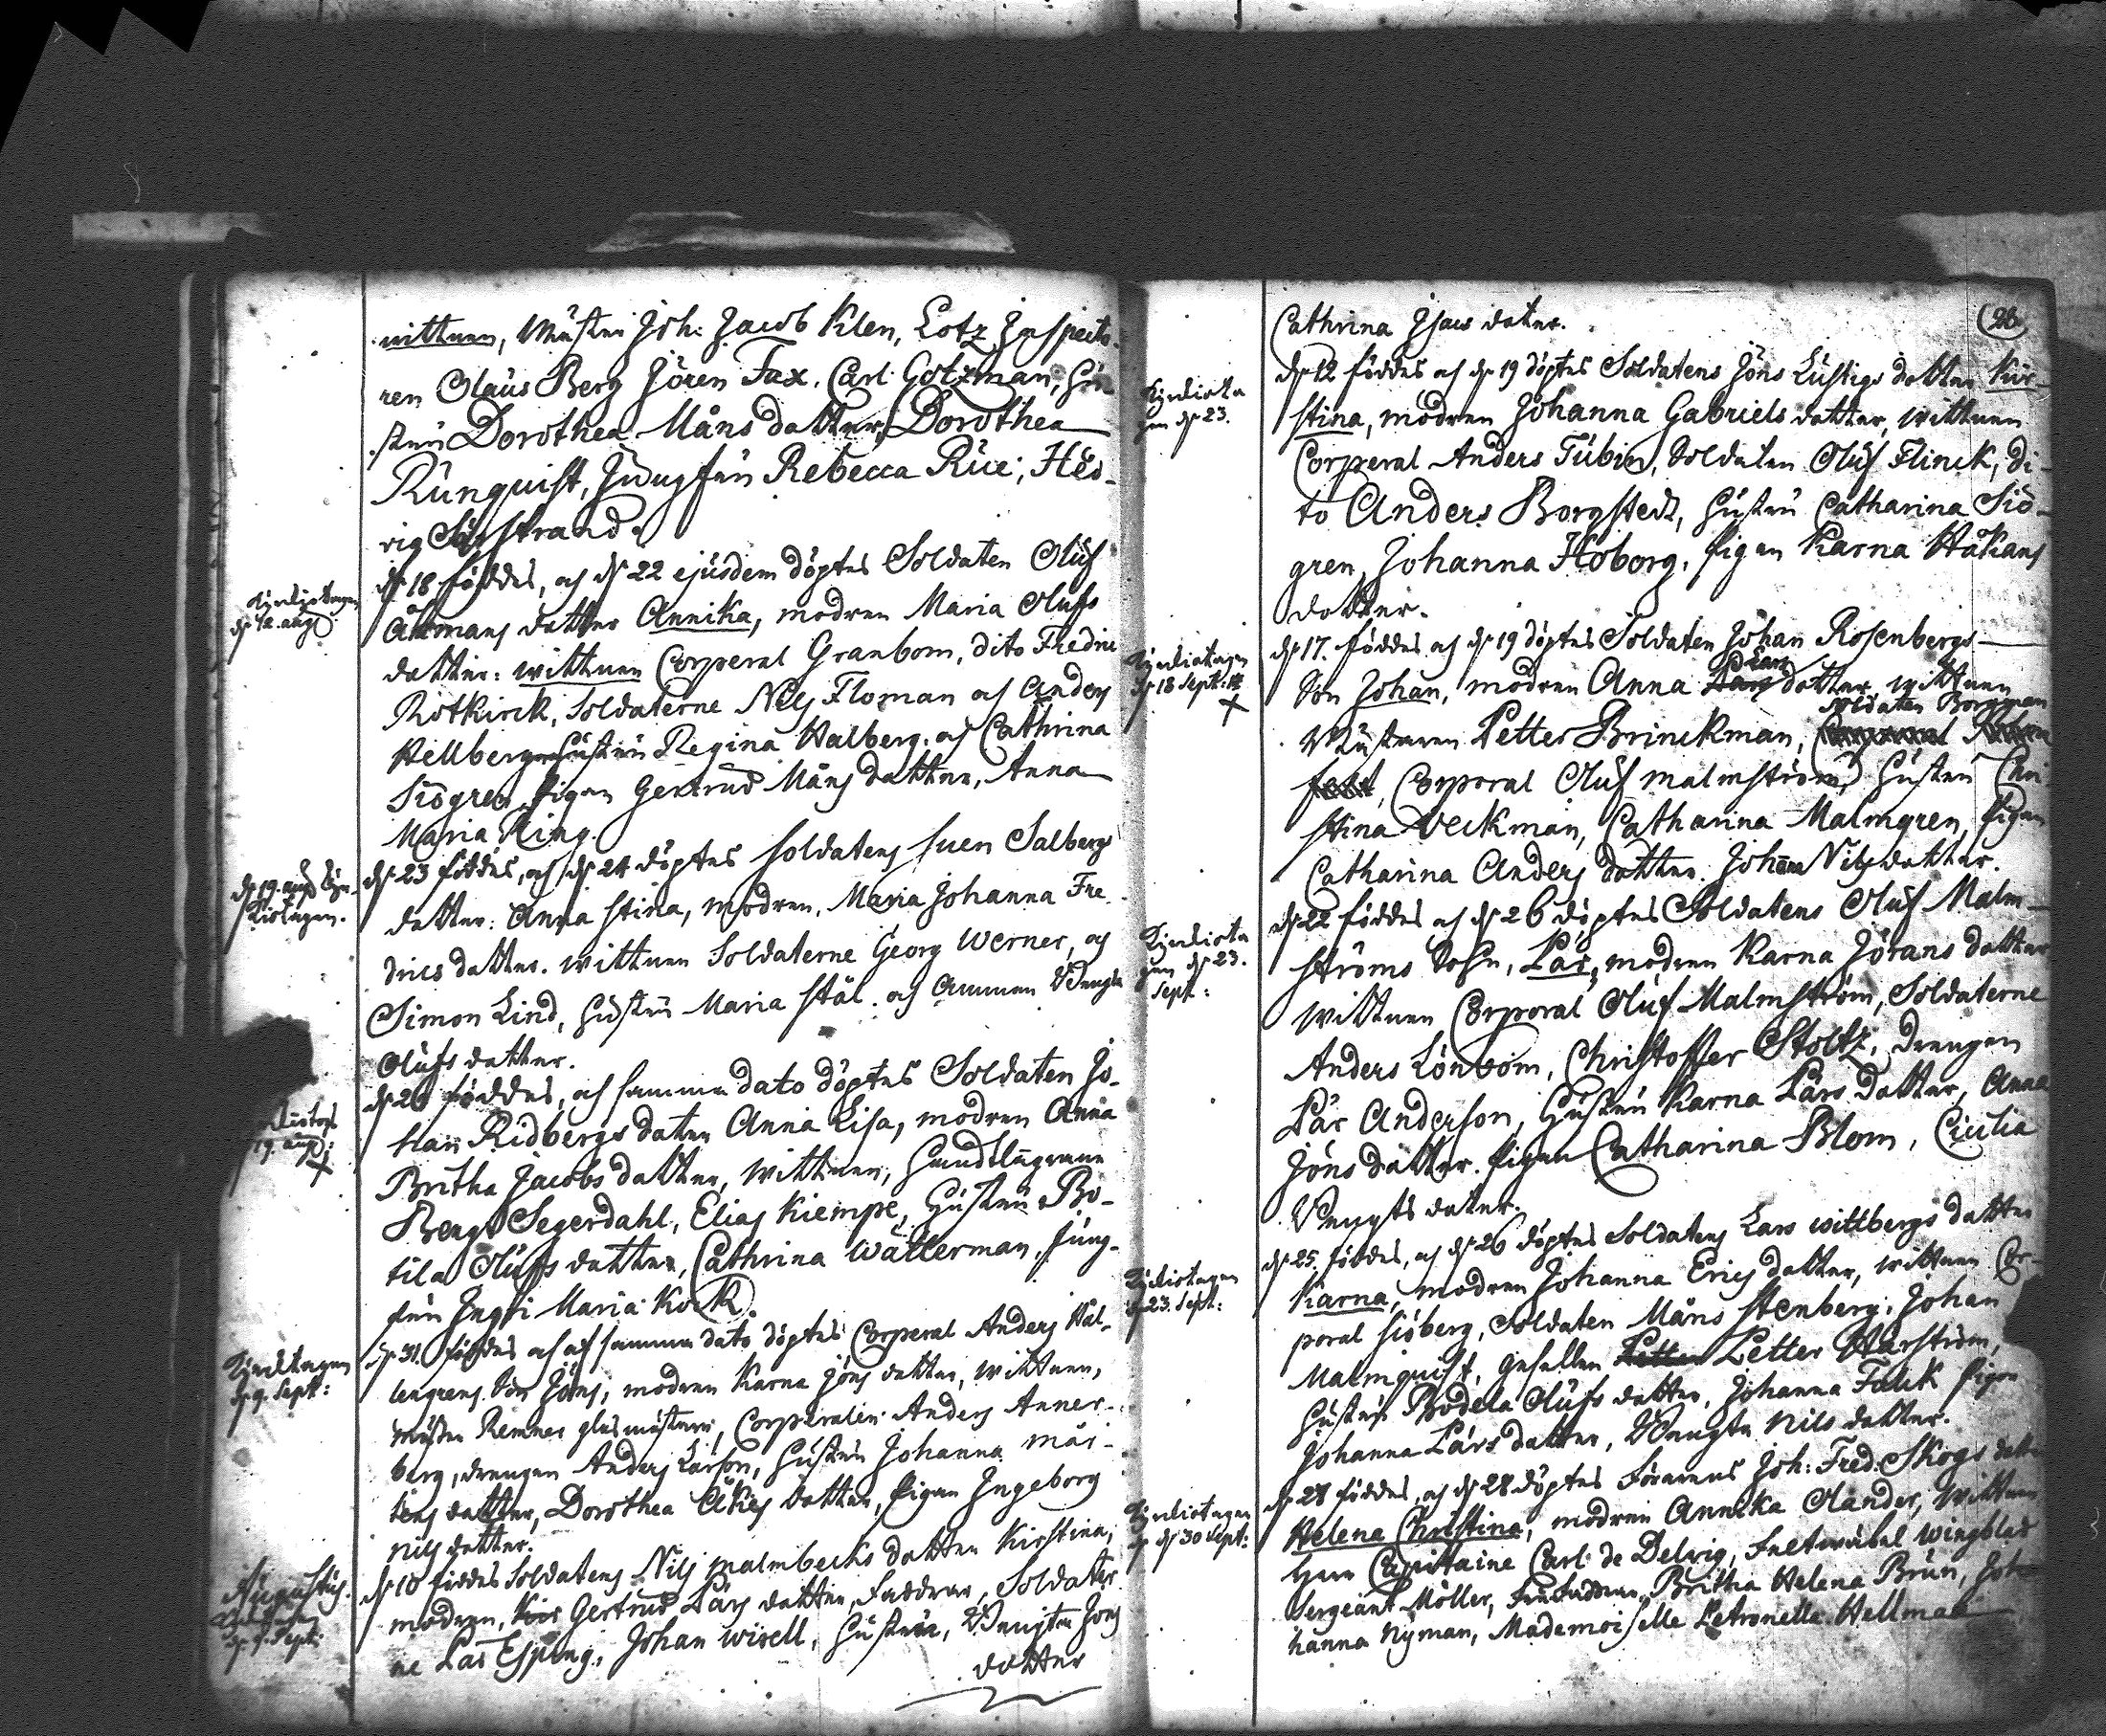 wittnen, Mästen Joh: Jacob Klen, Lotz Inspecto-
ren Olaus Berg Jören Fax, Carl Gotzman, Hu-
strun Dorothea Månsdotter, Dorothea
Runquist, Jungfrun Rebecca Rüe, Hed-
vig Siöstrand.
Kyrkiotagen
d 12. aug
d 18 föddes, och d 22 ejusdem döptes Soldaten Oluf
Åkermans dotter Annika, modren Maria Olufs
dotter: wittnen Corperal Granbom, dito Fredric
Rotkirck, Soldaterne Nils Floman och Anders
Hellberg, hustru Regina Halberg, och Cathrina
Siögren, pigan Gertrud Måns dotter, Anna
Maria Ring.
d 19. aug Kyr-
kiotagen.
d 23 föddes, och d 24 döptes Soldatens Suen Salbergs
dotter: Anna Stina, modren, Maria Johanna Fre-
drics dotter. wittnen Soldaterne Georg Werner, och
Simon Lind, hustru Maria Stål. och Amman Bengta
Olufs dotter.
19. aug:
d 26 föddes, och samma dato döptes Soldaten Jo-
han Ridbergs doter Anna Lisa, modren Anna
Britha Jacobs dotter, wittnen,
Bengt Segerdahl, Elias Kiempe, hustru Bo-
tila Olufs dotter, Cathrina Wätterman, Jung-
frun Ingri Maria Kock.
Kyrkiotagen
d 9. Sept:
d 31. föddes och samma dato döptes Corperal Anders Hal-
lengrens Son Jöns, modren Karna Jöns dotter, wittnen,
Mäster Remner glasmästare, Corperalen Anders Anner-
berg, drengen Anders Larson, hustru Johanna Mår-
tens dotter, Dorothea Åkes dotter, pigan Ingeborg
Nils dotter.
Augustus.
d 9. Sept:
d 10 föddes Soldatens Nils Malmbecks dotter Kirstina,
modren, Gertrud Lars dotter, Faddrar, Soldater
ne Lars Esping, Johan Wisell, hustrun, Bengta Jöns
dotter
28
Cathrina Isacs doter.
Kyrkiota
gen d 23.
d 12 föddes och d 19 döptes Soldatens Jöns Lustigs dotter Kir-
stina, modren Johanna Gabriels dotter, wittnen
Corperal Anders Tubin, Soldaten Oluf Flinck, di-
to Anders Borgstedt, hustru Catharina Siö-
gren, Johanna Hoborg, pigan Karna Håkans
dotter.
Kyrkiotagen
d 18 Sept:
d 17. föddes och d 19 döptes Soldaten Johan Rosenbergs
Son Johan, modren Anna Lars dotter, wittnen
Soldaten Borgman
Mästaren Petter Brinckman,
Corporal Oluf Malmström, hustru Chri
stina Weckman, Catharina Malmgren, pigan
Catharina Anders dotter. Johan Nilsdotter.
Kyrkiota
gen d 23.
Sept:
d 22 föddes och d 26 döptes Soldatens Oluf Malm-
ströms Sohn, Lars, modren Karna Jörans dotter
wittnen Corporal Oluf Malmström, Soldaterne
Anders Lönbom, Christoffer Stoltz, Drengen
Lars Anderson, hustru Karna Lars dotter, Anna
Jöns dotter. pigan Catharina Blom, Cicilia
Bengts doter.
Kyrkiotagen
d 23. Sept:
d 25. föddes, och d 26 döptes Soldatens Lars Wittbergs dotter
Karna, modren Johanna Erics dotter, wittnen Cor-
poral Siöberg, Soldaten Måns Stenberg, Johan
Malmquist, gesellen Petter Harström,
hustru Bodela Olufs dotter, Johanna Falk pigan
Johanna Lars dotter, Bengta Nils dotter.
Kyrkiotagen
d 30 Sept:
d 27 föddes, och d 28 döptes Förarens Joh: Fred: Skogs dotter
Helena Christina, modren Annika Olander, wittnen
Herr Capitaine Carl de Delwig, Feltwäbel Wingblad
Sergeant Möller, Britha Helena Brun, Jo-
hanna Nyman, Mademoiselle Petronella Hellman